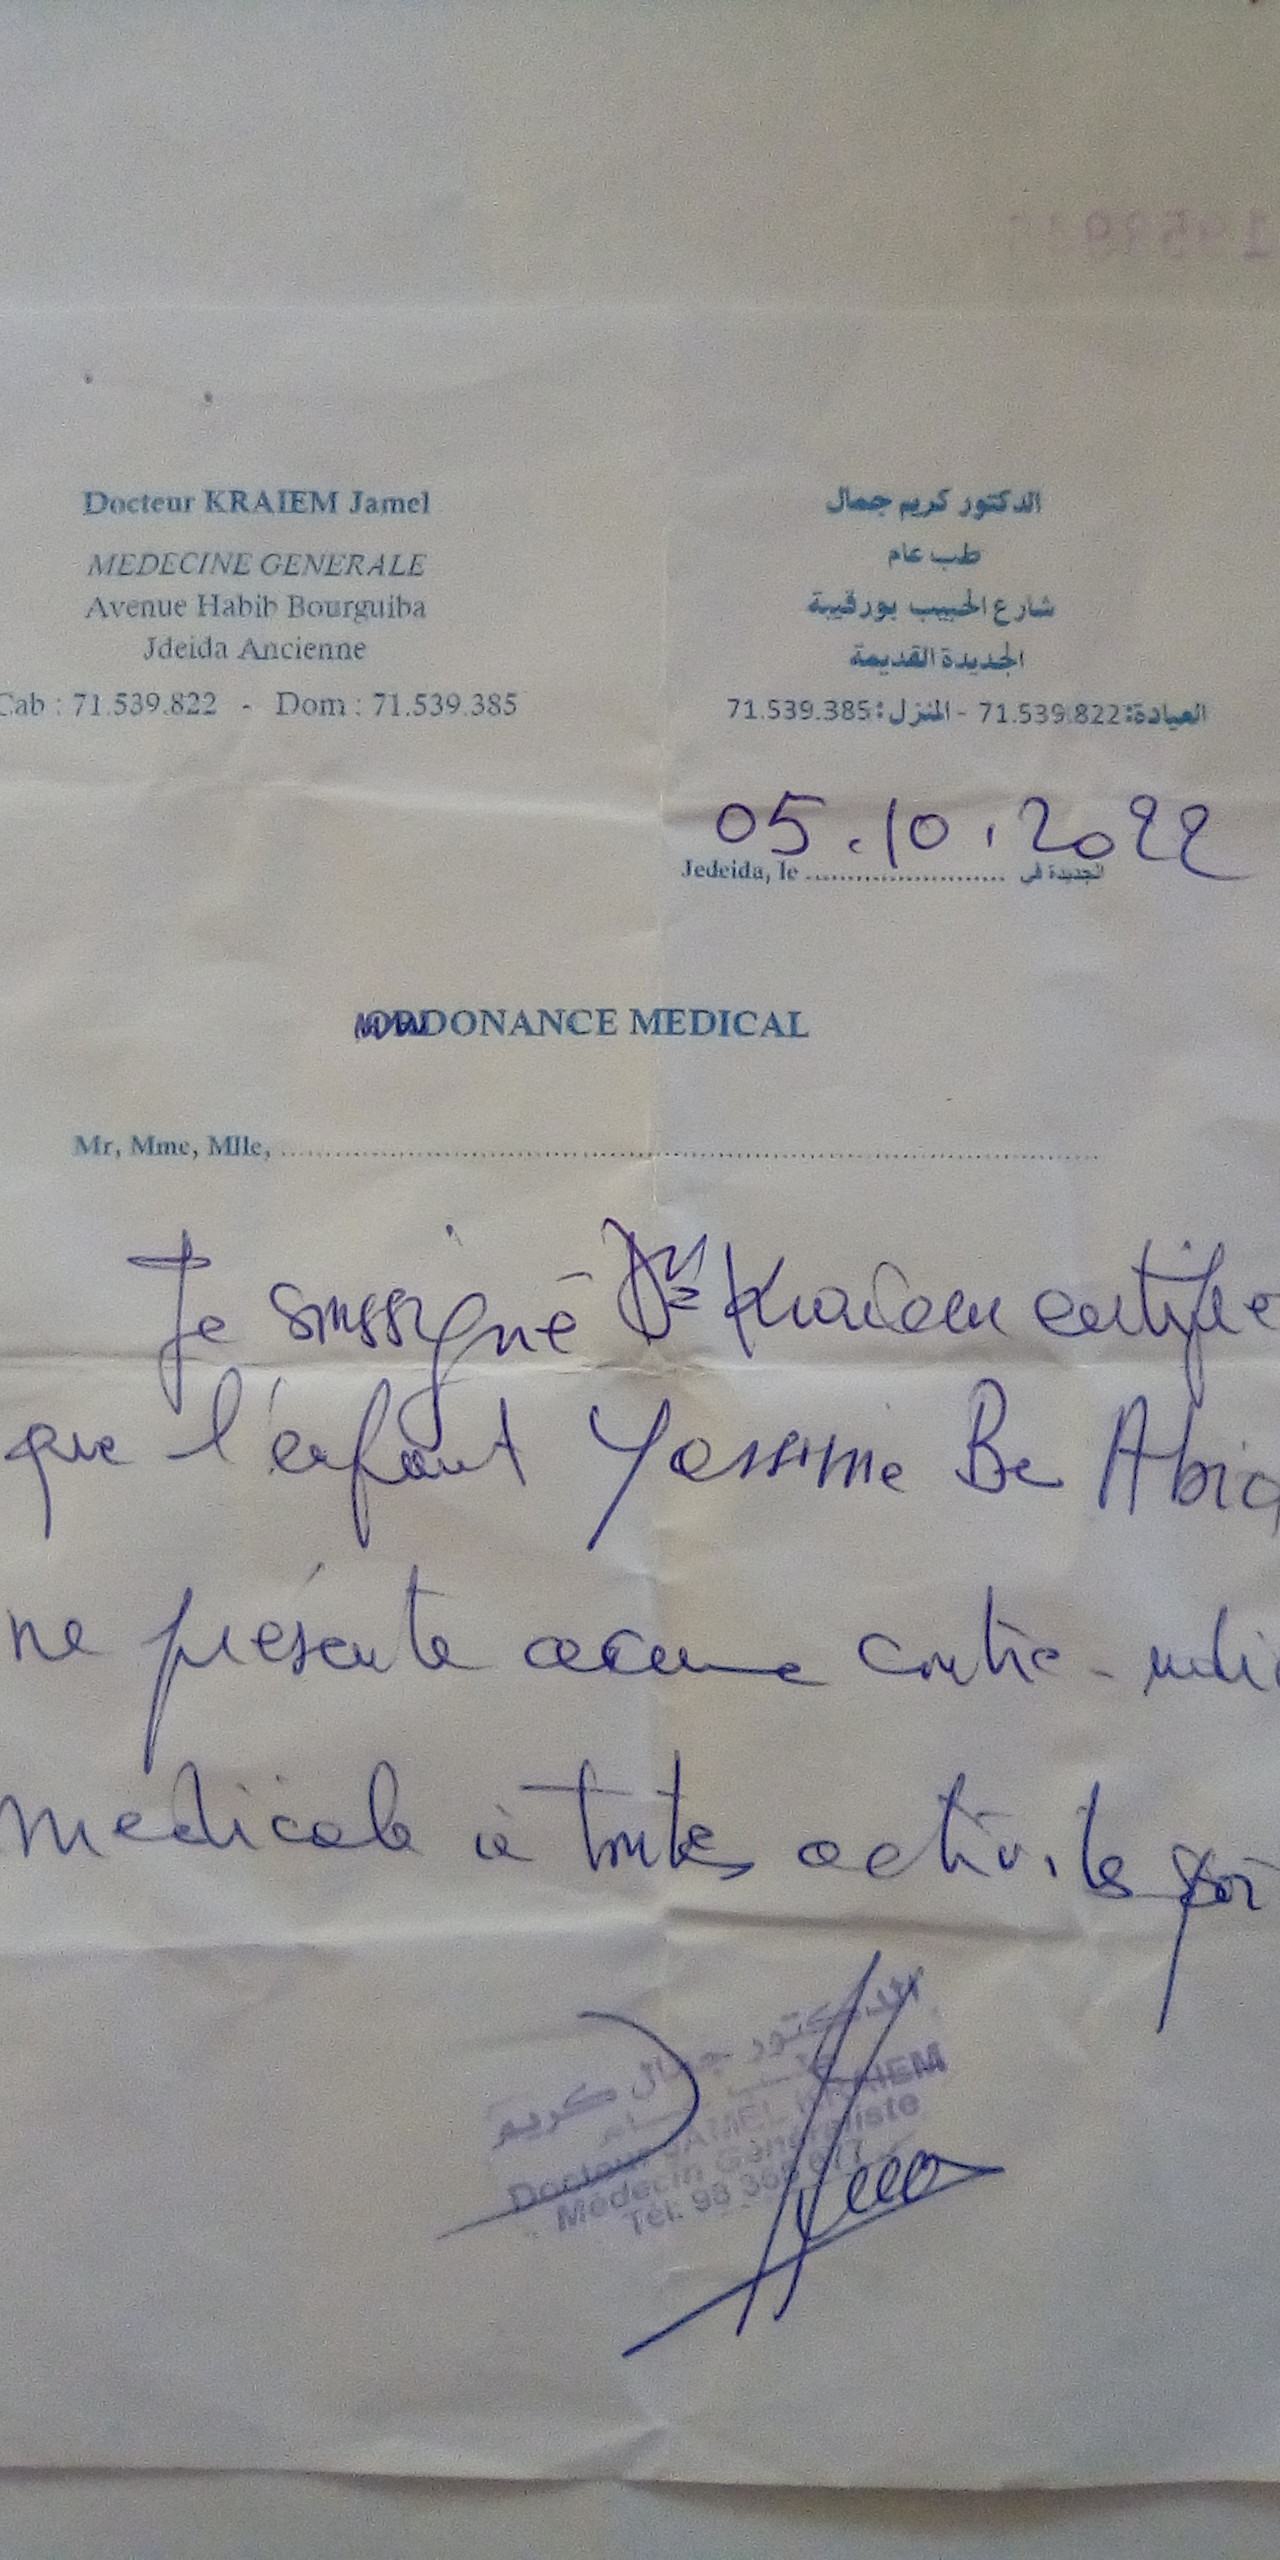 Docteur KRAIEM Jamel
MEDECINE GENERALE
Avenue Habib Bourguiba
Jdeida Ancienne
Cab : 71.539.822 - Dom : 71.539.385
الدكتور كريم جمال
طب عام
شارع الحبيب بورقيبة
الجديدة القديمة
العيادة: 71.539.822 - المنزل: 71.539.385
05.10.2022
Jedeida, le ........................ الجديدة في
ORDONANCE MEDICAL
Mr, Mme, Mlle, ................................................
Je soussigné Dr Kraiem certifie
que l'enfant Yassine Be Abid
ne présente aucune contre-indi
médicale à toutes activités
الدكتور جمال كريم
طب عام
Docteur JAMEL KRAIEM
Médecin Généraliste
Tél. 98